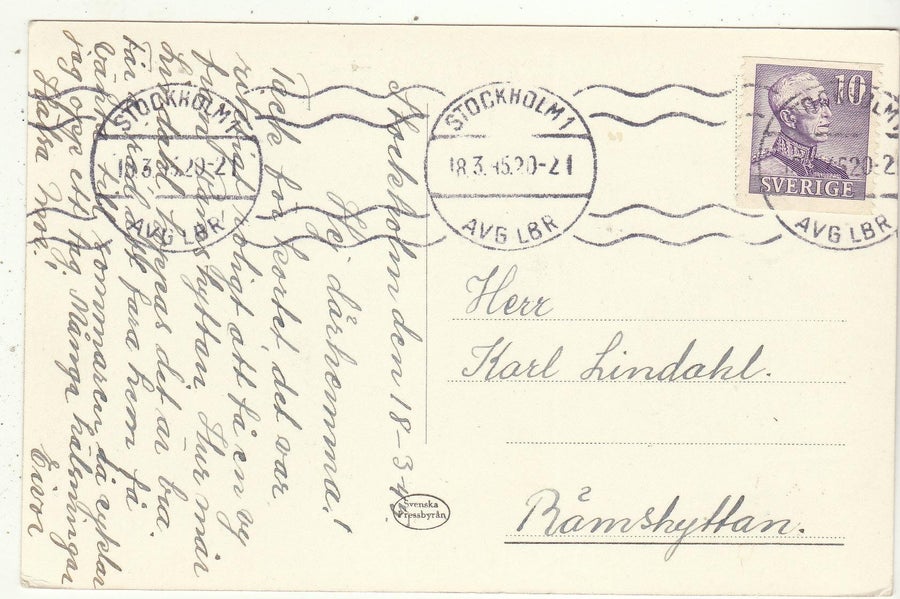 Stockholm den 18-3-45.
Hej därhemma!
Tack för kortet, det var
roligt att få en vy
från Rämshyttan. Hur mår
hoppas det är bra.
får jag fara hem på
till sommaren, då cyklar
jag upp ett tag. Många hälsningar
Hälsa Eivor
STOCKHOLM 1
18.3.45.20-21
AVG LBR
STOCKHOLM 1
18.3.45.20-21
AVG LBR
10
SVERIGE
AVG LBR
Herr
Karl Lindahl.
Rämshyttan.
Svenska
Pressbyrån